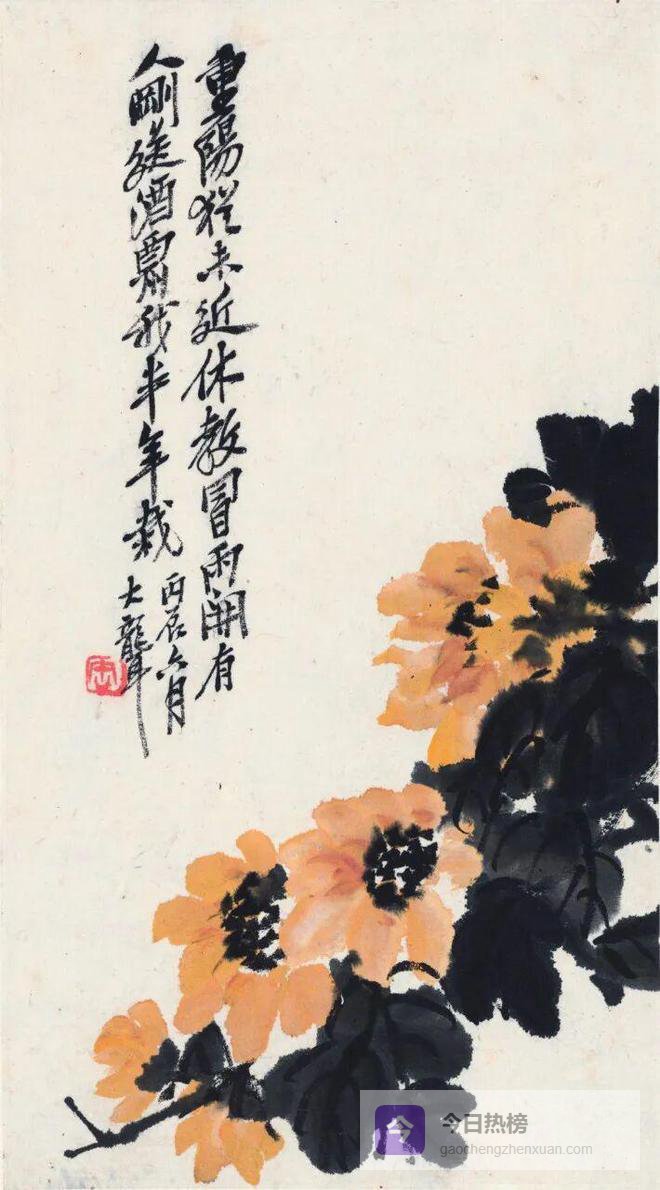 重陽猶未近休教冒雨開有
人剛酒我半年栽
丙辰六月
大聾
今
今日热榜
gaochengzhenxuan.com